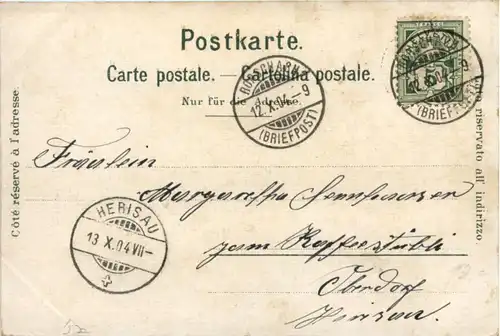 Postkarte.
Carte postale. — Cartolina postale.
Nur für die Adresse.
RORSCHACH
12.X.04.-9
(BRIEFPOST)
RORSCHACH
12.X.04.-9
(BRIEFPOST)
Côté réservé à l'adresse.
Lato riservato all' indirizzo.
Fräulein
Margaretha
zum Kaffeestübli
Oberdorf
Herisau.
HERISAU
13 X.04 VII-